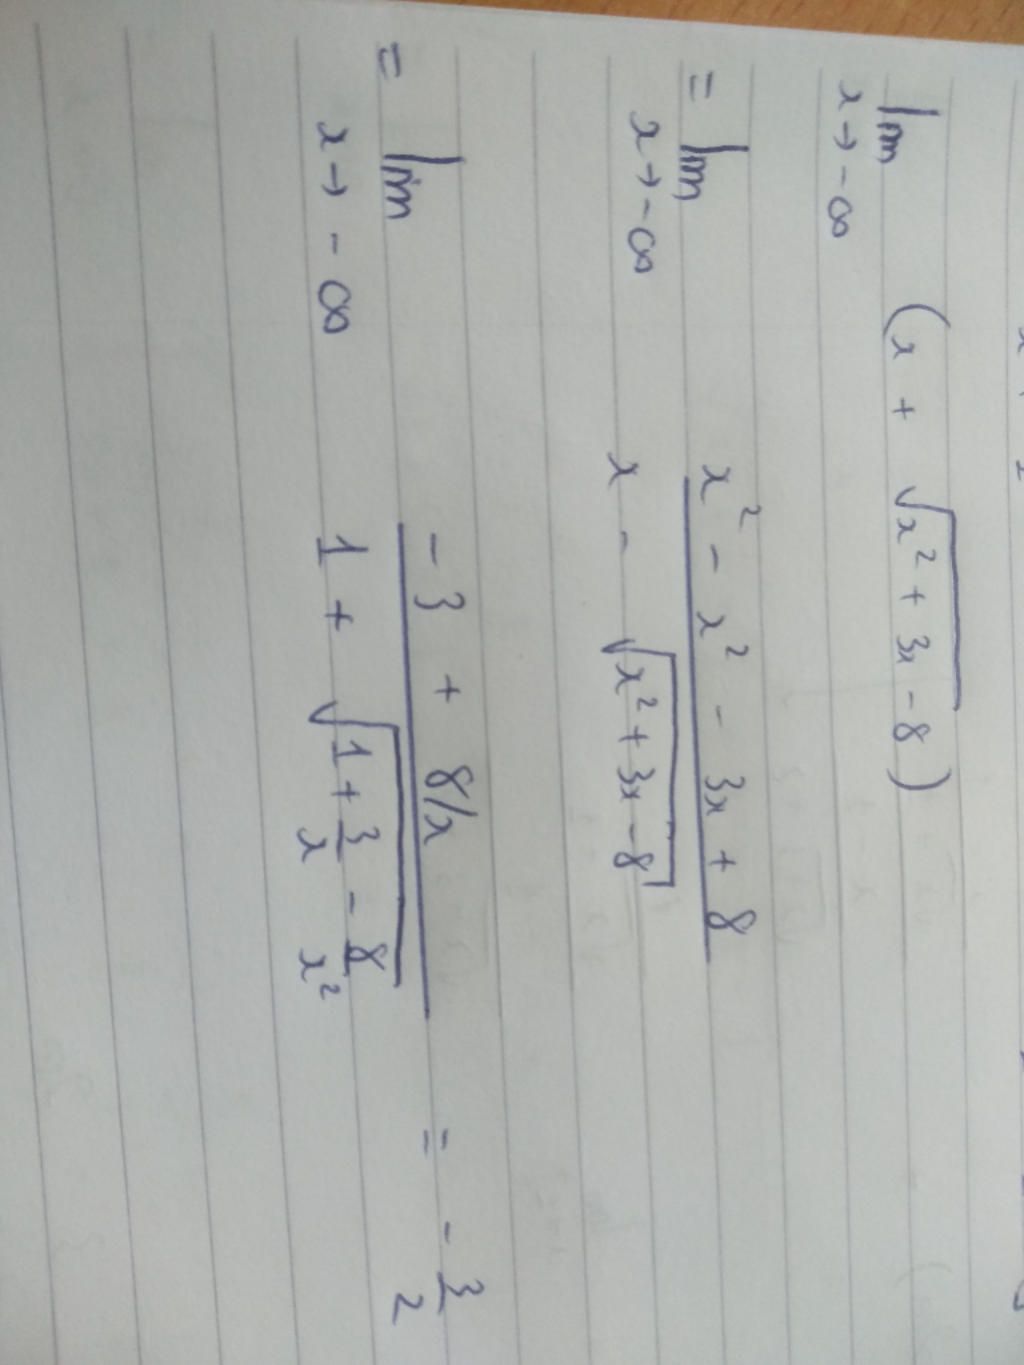 lim x→-∞ (x + √(x² + 3x - 8))
= lim x→-∞ (x² - x² - 3x + 8) / (x - √(x² + 3x - 8))
= lim x→-∞ (-3 + 8/x) / (1 + √(1 + 3/x - 8/x²)) = -3/2